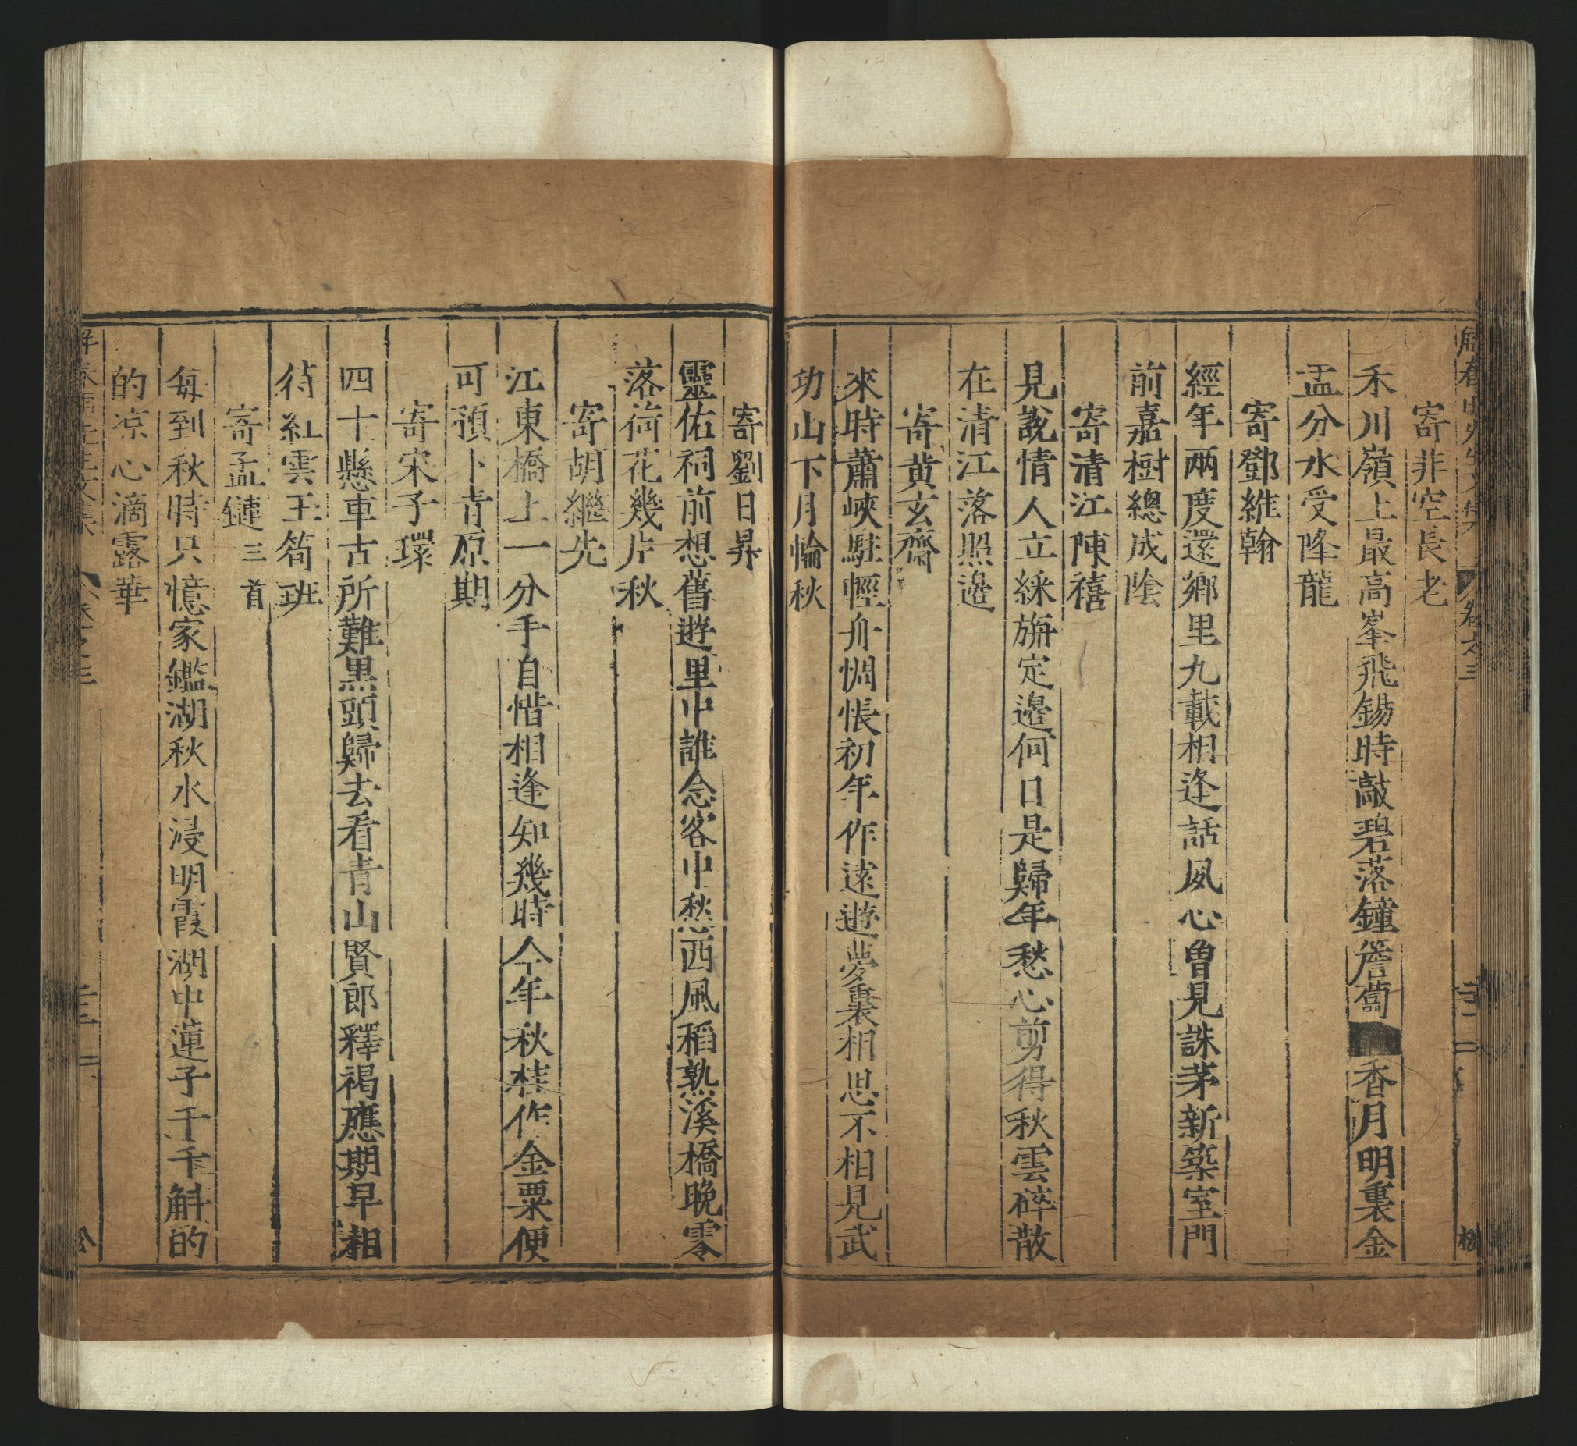 寄非空長老
禾川嶺上最高峯飛錫時敲碧落鐘簷蔔香月明裏金
盂分水受降龍
寄鄧維翰
經年兩度還鄉里九載相逢話夙心曽見誅茅新築室門
前嘉樹總成陰
寄清江陳禧
見說情人立綵旃定邉何日是歸年愁心剪得秋雲碎散
在清江落照邉
寄黄玄齋
來時蕭峽駐輕舟惆悵初年作遠遊夢裏相思不相見武
功山下月輪秋
寄劉日昇
靈佑祠前想舊遊里中誰念客中愁西風稻熟溪橋晚零
落荷花幾片秋
寄胡繼先
江東橋上一分手自惜相逢知幾時今年秋桂作金粟便
可預卜青原期
寄宋子環
四十懸車古所難黒頭歸去看青山賢郎釋褐應期早相
待紅雲玉筍班
寄孟鏈三首
每到秋時只憶家鑑湖秋水浸明霞湖中蓮子千千斛的
的凉心滴露華